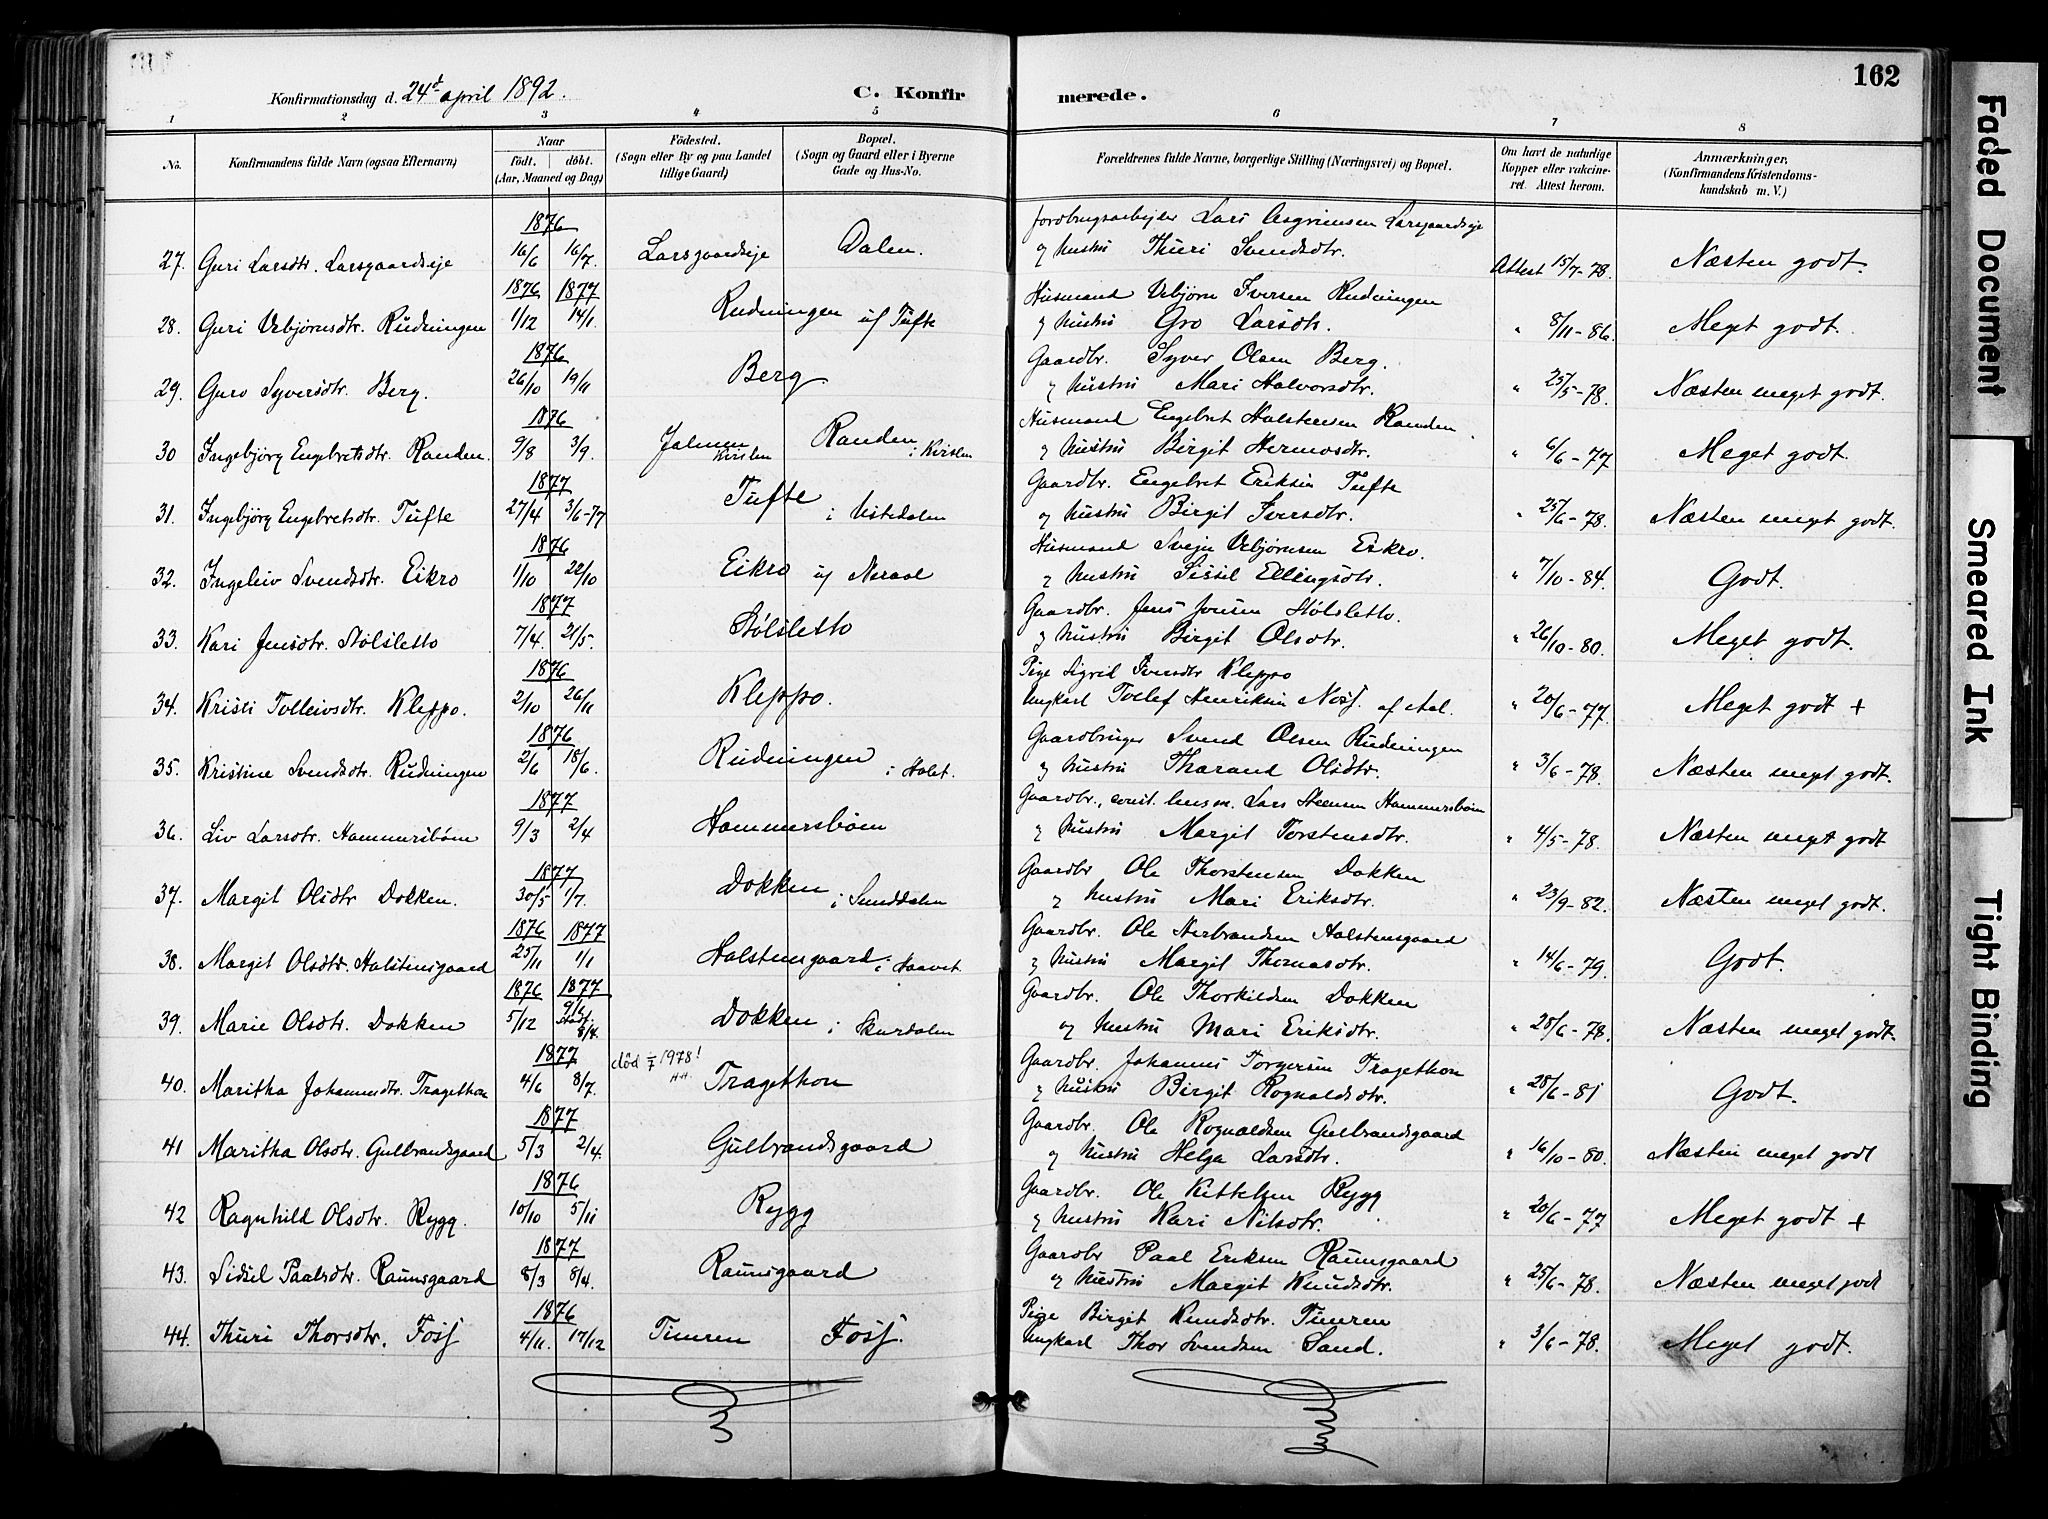 162
Konfirmationsdag d. 24d april 1892.
C. Konfirmerede.
1 2 3 4 5 6 7 8
No. Konfirmandens fulde Navn (ogsaa Efternavn) Naar født. døbt. (Aar, Maaned og Dag) Födested. (Sogn eller By og paa Landet tillige Gaard) Bopæl. (Sogn og Gaard eller i Byerne Gade og Hus-No.
Forældrenes fulde Navne, borgerlige Stilling (Næringsvei) og Bopæl. Om havt de naturlige Kopper eller vakcineret. Attest herom. Anmærkninger. (Konfirmandens Kristendomskundskab m. V.)
1876 Jordbrugsarbejder Lars Asgrimsen Larsgaardseje
27. Guri Larsdtr. Larsgaardseje 16/6 16/7. Larsgaardseje Dalen. og hustru Thuri Svendsdtr. Attest 15/7-78. Næsten godt.
1876 1877 Husmand Vebjørn Iversen Rudningen
28. Guri Vebjørnsdtr. Rudningen 1/12 14/1. Rudningen u/ Tufte og hustru Gro Larsdtr. " 8/11-86. Meget godt.
1876 Gaardbr. Syver Olsen Berg.
29. Guro Syversdtr. Berg. 26/10 19/11 Berg og hustru Mari Halvorsdtr. " 25/5-78. Næsten meget godt.
1876 Husmand Engebret Holstensen Randen
30 Ingebjørg Engebretsdtr. Randen. 9/8 3/9. Randen i Kvislen og hustru Birgit Hermosdtr. " 6/6-77 Meget godt.
1877 Gaardbr. Engebret Eriksen Tufte
31. Ingebjørg Engebretsdtr. Tufte 27/4 3/6-77 Tufte i Ustedalen og hustru Birgit Iversdtr. " 25/6-78. Næsten meget godt.
1876 Husmand Svejn Vebjørnsen Eikro.
32. Ingeleiv Svendsdtr. Eikro 1/10 22/10 Eikro u/ Neraal og hustru Sissil Ellingsdtr. " 7/10-84. Godt.
1877 Gaardbr. Jens Jonsen Stølsletto.
33. Kari Jensdtr. Stølsletto 7/4. 21/5. Stølsletto og hustru Birgit Olsdtr. " 26/10-80. Meget godt.
1876 Pige Sigrid Kleppo
34. Kristi Tolleivsdtr. Kleppo. 2/10 26/11 Kleppo. Ungkarl Tollef Henriksen af Aal. " 20/6-77. Meget godt +
1876 Gaardbruger Svend Olsen Rudningen
35. Kristine Svendsdtr. Rudningen 2/6 18/6. Rudningen i Holet. og hustru Tharand Olsdtr. " 3/6-78. Næsten meget godt.
1877 Gaardbr., const. Lars Steensen Hammersbøen
36. Liv Larsdtr. Hammersbøen 9/3 2/4 Hammersbøen og hustru Margit Torstensdtr. " 4/5-78. Næsten meget godt
1877 Gaardbr Ole Thorstensen Dokken
37. Margit Olsdtr Dokken. 30/5 1/7. Dokken i og hustru Mari Eriksdtr. " 23/9-82. Næsten meget godt.
1876 1877 Gaardbr. Ole Herbrandsen Holstensgaard
38. Margit Olsdtr. Holstensgaard 25/11 1/1 Holstensgaard i Haavet. og hustru Margit Thomasdtr. " 14/6-79. Godt.
1876 1877 Gaardbr. Ole Thorkildsen Dokken
39. Marie Olsdtr. Dokken 5/12 8/4. Dokken i Skurdalen og hustru Mari Eriksdtr. " 28/6-78. Næsten meget godt.
1877 død 1/7 1978! HH Gaardbr. Johannes Torgersen Tragethon
40. Maritha Johannesdtr. Tragethon 4/6 8/7. Tragethon og hustru Birgit Rognaldsdtr. " 28/6-81 Godt.
1877 Gaardbr. Ole Rognaldsen Gulbrandsgaard
41 Maritha Olsdtr. Gulbrandsgaard 5/3 2/4. Gulbrandsgaard og hustru Helga Larsdtr. " 16/10-80. Næsten meget godt
1876 Gaardbr. Ole Kittelsen Rygg
42 Ragnhild Olsdtr. Rygg. 10/10 5/11 Rygg og hustru Kari Nilsdtr. " 20/6-77 Meget godt +
1877 Gaardbr Paal Eriksen Raunsgaard
43. Sidsel Paalsdtr. Raunsgaard 8/3 8/4. Raunsgaard og hustru Margit Knudsdtr. " 25/6-78. Næsten meget godt
1876 Pige Birgit Knudsdtr. Timren
44. Thuri Thorsdtr. Foss 4/11. 17/12 Timren Foss. Ungkarl Thor Svendsen Sand. " 3/6-78. Meget godt.
Faded Document
Smeared Ink
Tight Binding